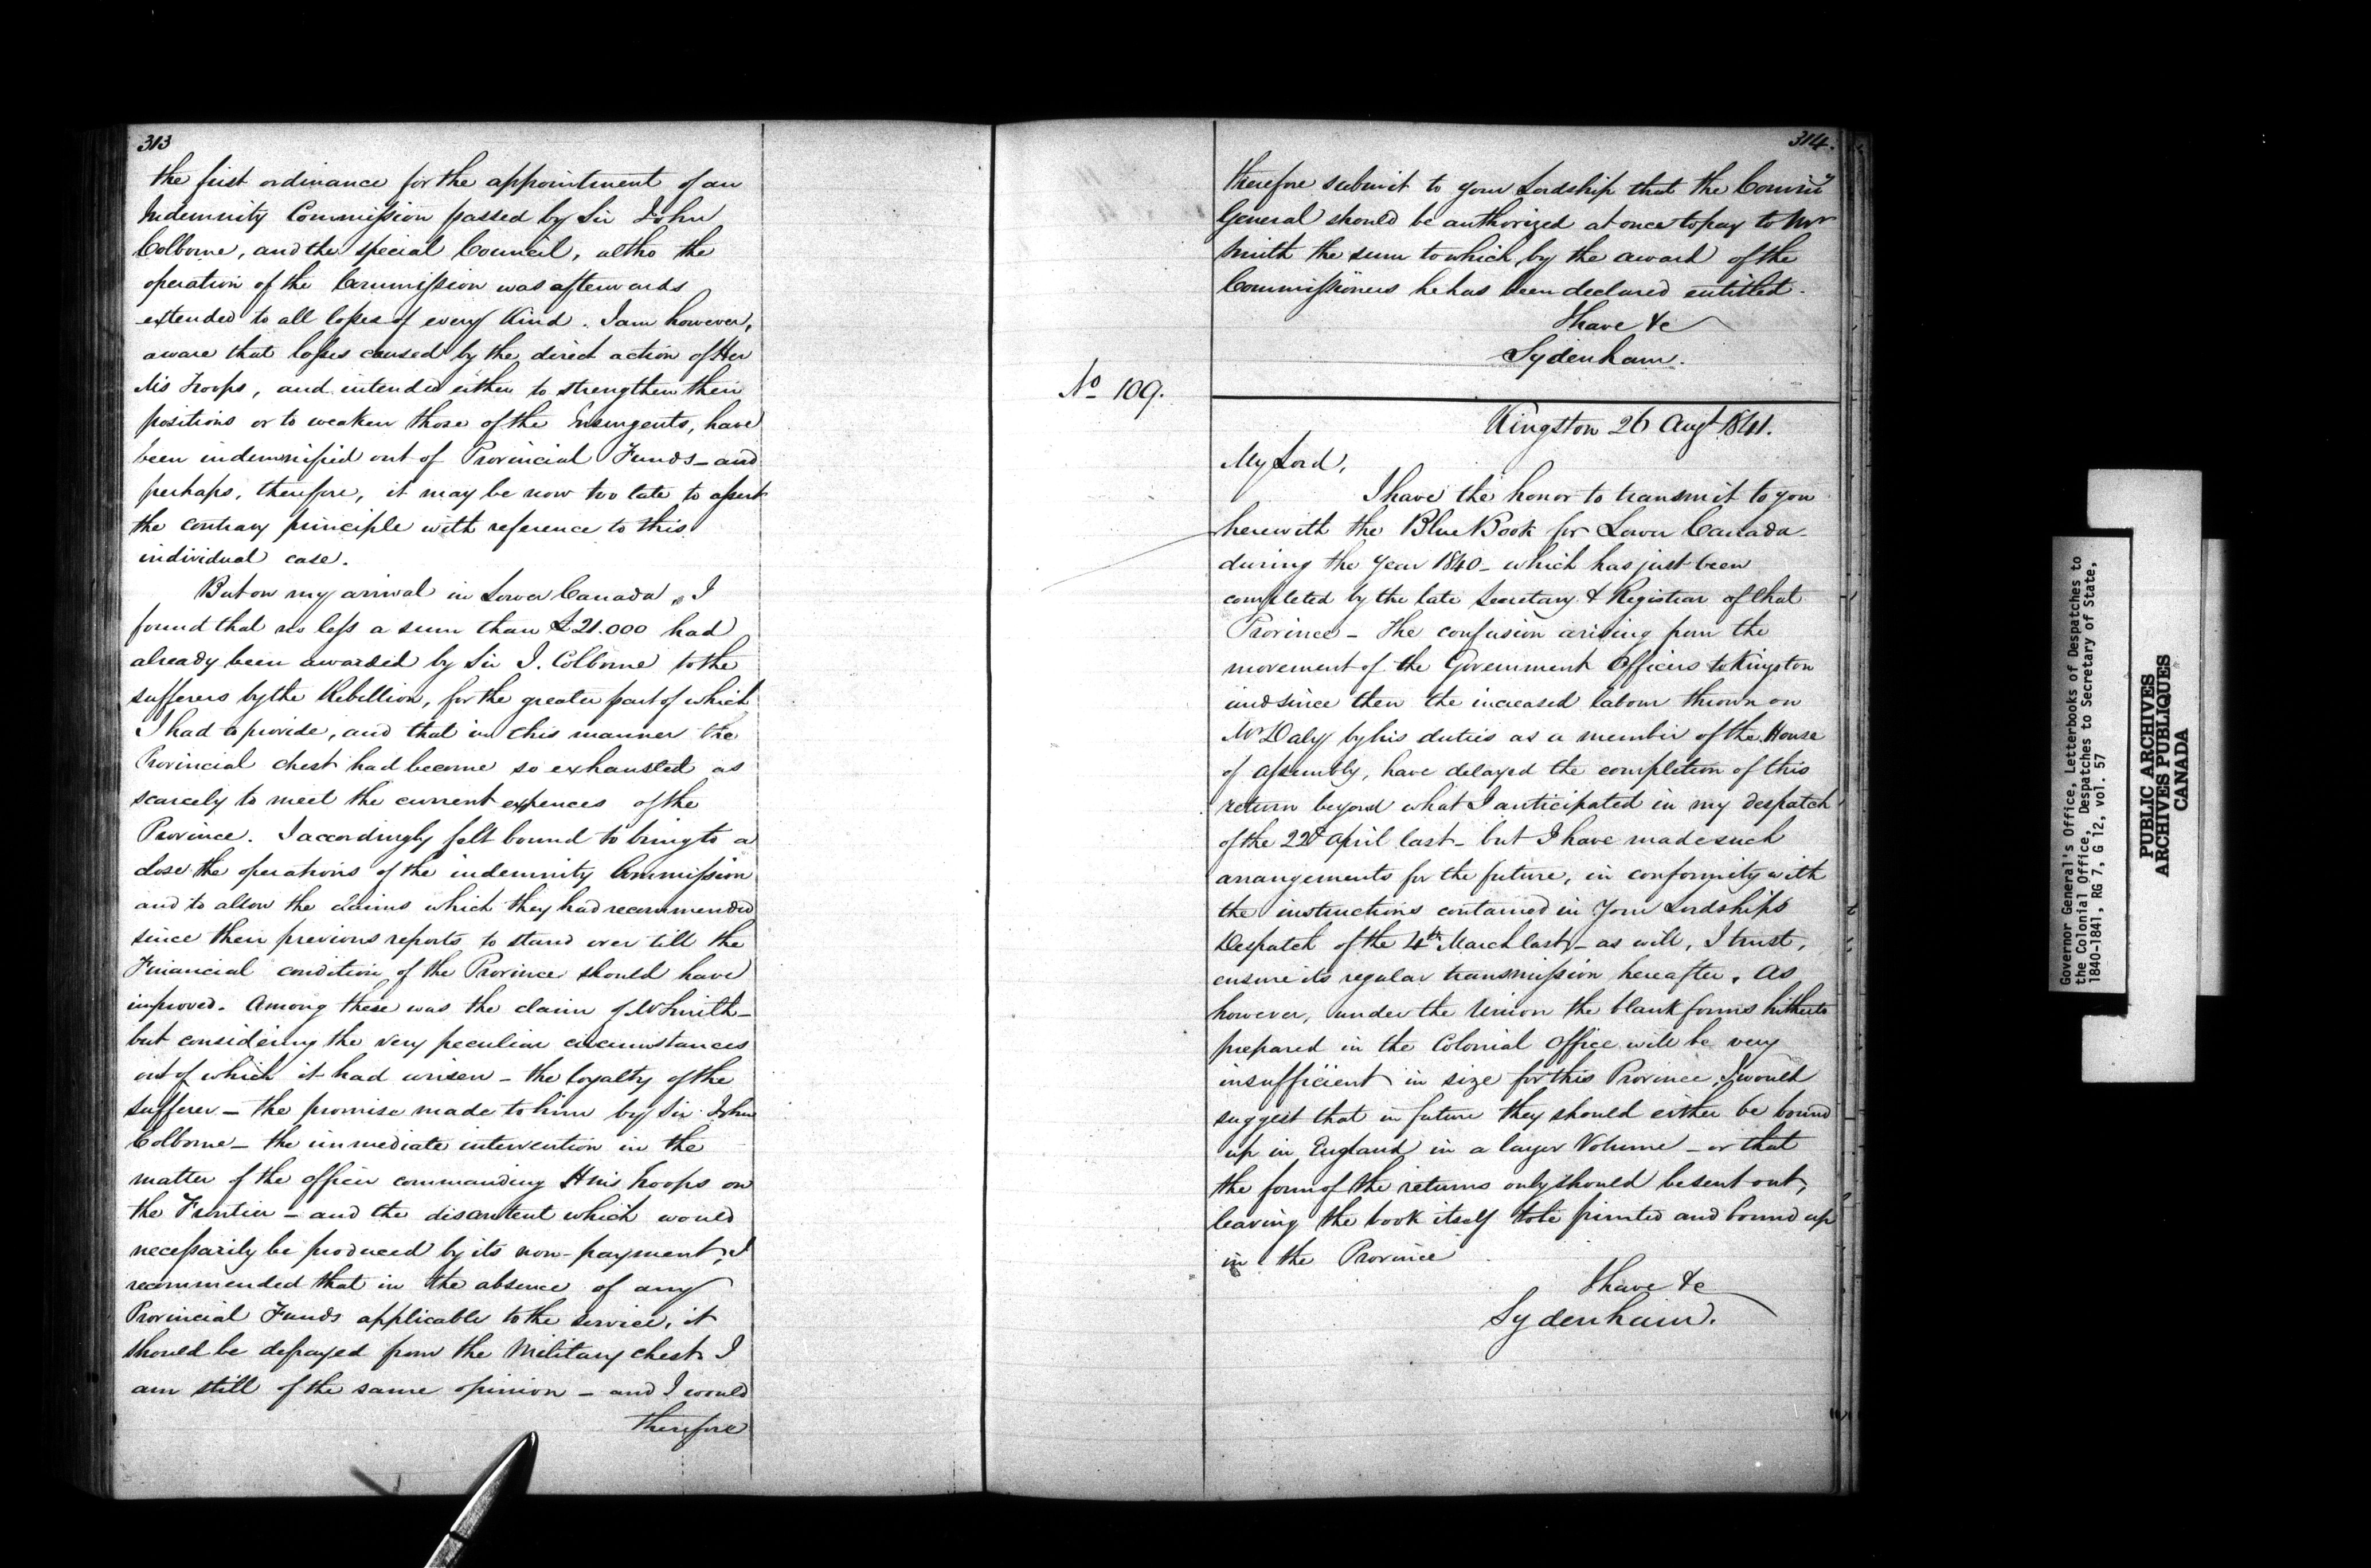 313
the first ordinance for the appointment of an
Indemnity Commission passed by Sir John
Colborne, and the special Council, altho the
operation of the Commission was afterwards
extended to all losses of every kind. I am however,
aware that losses caused by the direct action of Her
Ms Troops, and intended either to strengthen their
positions or to weaken those of the Insurgents, have
been indemnified out of Provincial Funds - and
perhaps, therefore, it may be now too late to assert
the contrary principle with reference to this
individual case.
But on my arrival in Lower Canada, I
found that no less a sum than £21.000 had
already been awarded by Sir J. Colborne to the
sufferers by the Rebellion, for the greater part of which
I had to provide, and that in this manner the
Provincial chest had become so exhausted as
scarcely to meet the current expences of the
Province. I accordingly felt bound to bring to a
close the operations of the indemnity Commission
and to allow the claims which they had recommended
since their previous reports to stand over till the
Financial condition of the Province should have
improved. Among these was the claim of Mr Smith -
but considering the very peculiar circumstances
out of which it had arisen - the loyalty of the
sufferer - the promise made to him by Sir John
Colborne - the immediate intervention in the
matter of the officer commanding H Ms Troops on
the Frontier - and the discontent which would
necessarily be produced by its non-payment, I
recommended that in the absence of any
Provincial Funds applicable to the service, it
should be defrayed from the Military chest. I
am still of the same opinion - and I would
therefore
314.
therefore submit to your Lordship that the Commy
General should be authorized at once to pay to Mr
Smith the sum to which by the award of the
Commissioners he has been declared entitled.
I have &c
Sydenham.
No 109.
Kingston 26 Augt 1841.
My Lord,
I have the honor to transmit to you
herewith the Blue Book for Lower Canada
during the year 1840 - which has just been
completed by the late Secretary & Registrar of that
Province - The confusion arising from the
movement of the Government Officers to Kingston
and since then the increased labour thrown on
Mr Daly by his duties as a member of the House
of Assembly, have delayed the completion of this
return beyond what I anticipated in my despatch
of the 22d April last - but I have made such
arrangements for the future, in conformity with
the instructions contained in Your Lordship's
Despatch of the 4th March last - as will, I trust,
ensure its regular transmission hereafter. As
however, under the Union the blank forms hitherto
prepared in the Colonial Office will be very
insufficient in size for this Province, I would
suggest that in future they should either be bound
up in England in a larger Volume - or that
the form of the returns only should be sent out,
leaving the book itself to be printed and bound up
in the Province
I have &c
Sydenham.
Governor General's Office, Letterbooks of Despatches to
the Colonial Office, Despatches to Secretary of State,
1840-1841, RG 7, G 12, vol. 57
PUBLIC ARCHIVES
ARCHIVES PUBLIQUES
CANADA